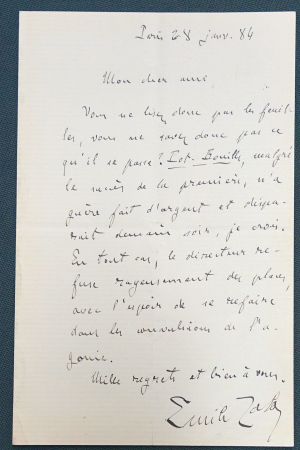 Paris 28 janv. 84
Mon cher ami
Vous ne lisez donc pas les feuil-
les, vous ne savez donc pas ce
qu'il se passe ? Pot-Bouille, malgré
le succès de la première, n'a
guère fait d'argent et dispa-
rait demain soir, je crois.
En tout cas, le directeur re-
fuse rageusement des places,
avec l'espoir de se refaire
dans les convulsions de l'a-
gonie.
Mille regrets et bien à vous.
Emile Zola